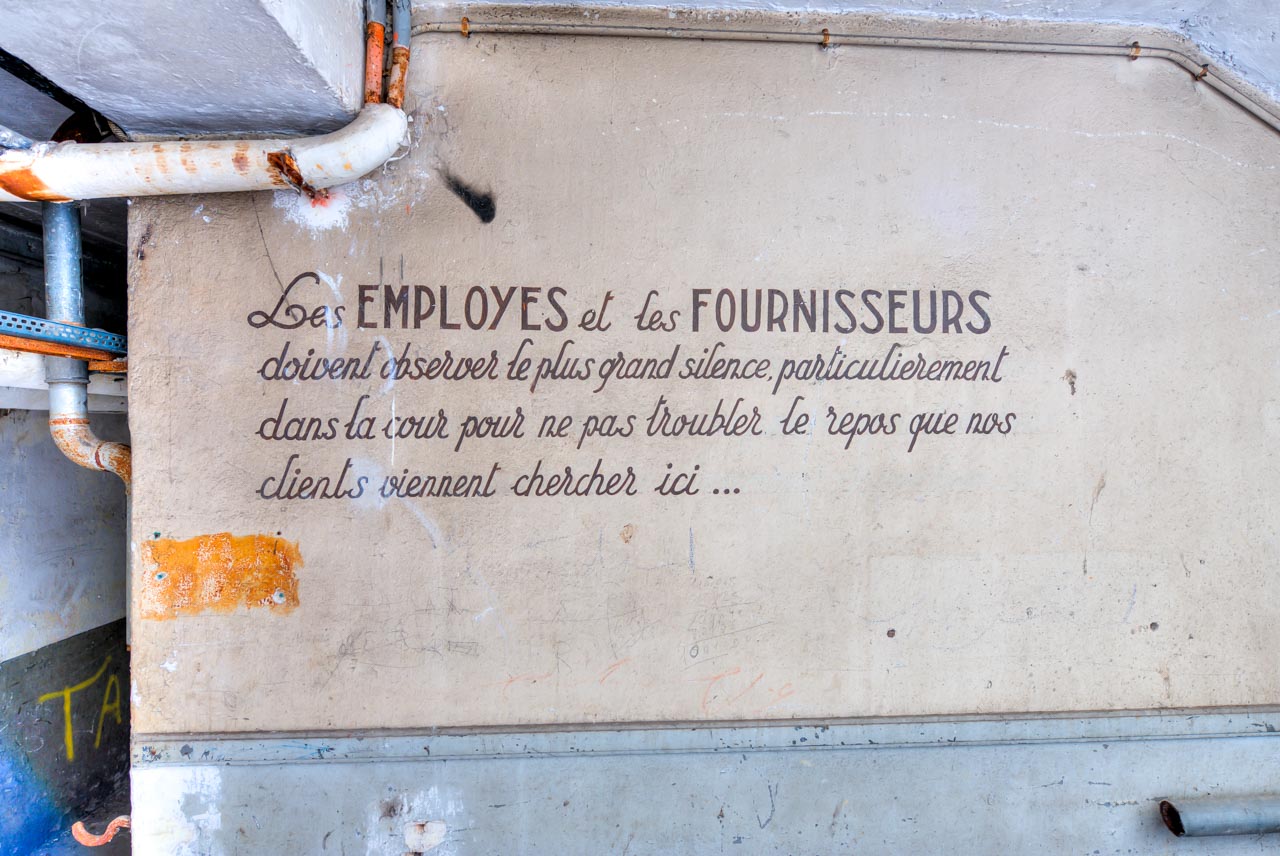 Les EMPLOYES et les FOURNISSEURS
doivent observer le plus grand silence, particulierement
dans la cour pour ne pas troubler le repos que nos
clients viennent chercher ici ...
TA